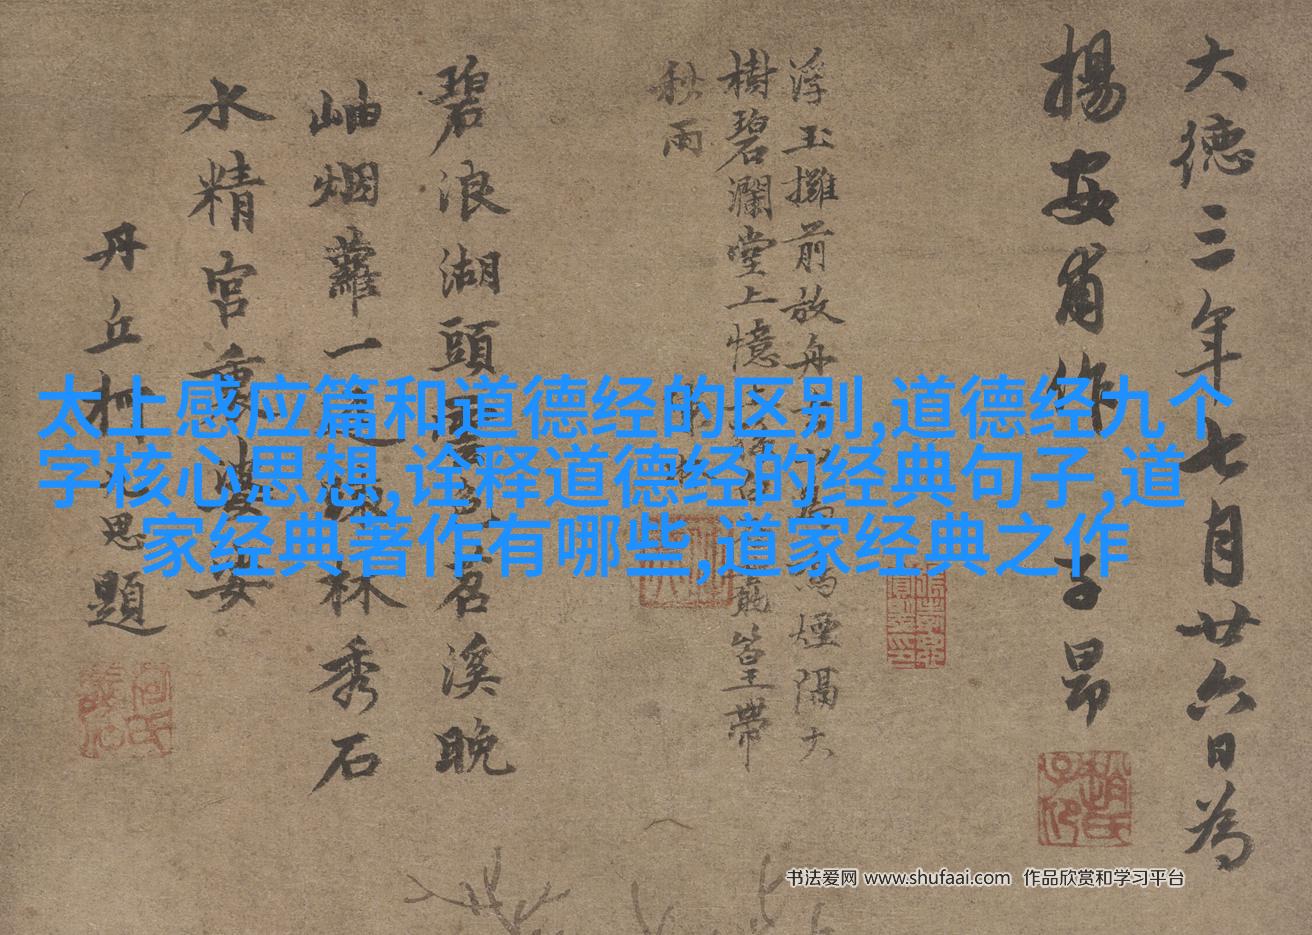 大德三年七月廿六日為
揚安甫作 子昂
浮玉攤前放舟 煙隔大
樹碧瀾堂上憶 篁帶
秋雨
碧浪湖頭 溪晚
岫烟蘿一 林秀石
水精宮裏
丹丘柯九思題
太上感应篇和道德经的区别,道德经九个
字核心思想,诠释道德经的经典句子,道
家经典著作有哪些,道家经典之作
书法爱网 www.shufaai.com 作品欣赏和学习平台